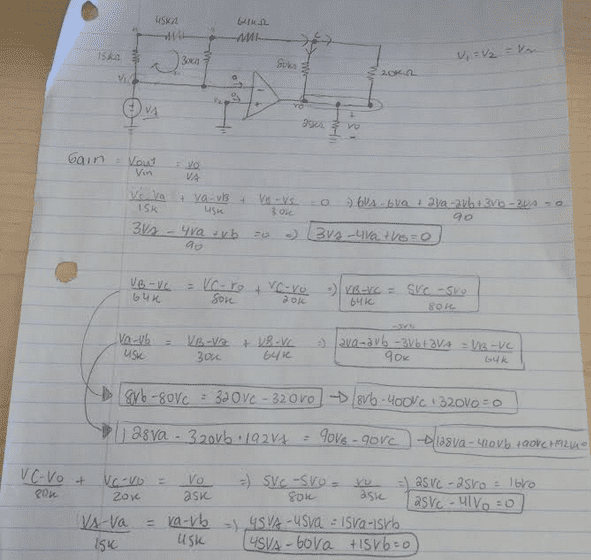 45KΩ 64KΩ
15KΩ 30KΩ 80KΩ 20KΩ
V1 = V2 = Vn
VA
25KΩ VO
Gain = Vout/Vin = VO/VA
(VS-Va)/15K + (Va-VB)/45K + (VB-VS)/30K = 0 ⇒ (6VS-6Va + 2Va-2Vb+3Vb-3VS)/90 = 0
(3VS - 4Va + Vb)/90 = 0 ⇒ 3VS-4Va+Vb=0
(VB-VC)/64K = (VC-VO)/80K + (VC-VO)/20K ⇒ (VB-VC)/64K = (5VC-5VO)/80K
(Va-Vb)/45K = (VB-VS)/30K + (VB-VC)/64K ⇒ (2Va-2Vb-3Vb+3VS)/90K = (VB-VC)/64K
-5Vb
8Vb-80VC = 320VC-320VO → 8Vb-400VC+320VO=0
128Va-320Vb+192VS = 90VB-90VC → 128Va-410Vb+90VC+192VS=0
(VC-VO)/80K + (VC-VO)/20K = VO/25K ⇒ (5VC-5VO)/80K = VO/25K ⇒ 25VC-25VO=16VO
25VC-41VO=0
(VS-Va)/15K = (Va-Vb)/45K ⇒ 45VS-45Va=15Va-15Vb
45VS-60Va+15Vb=0